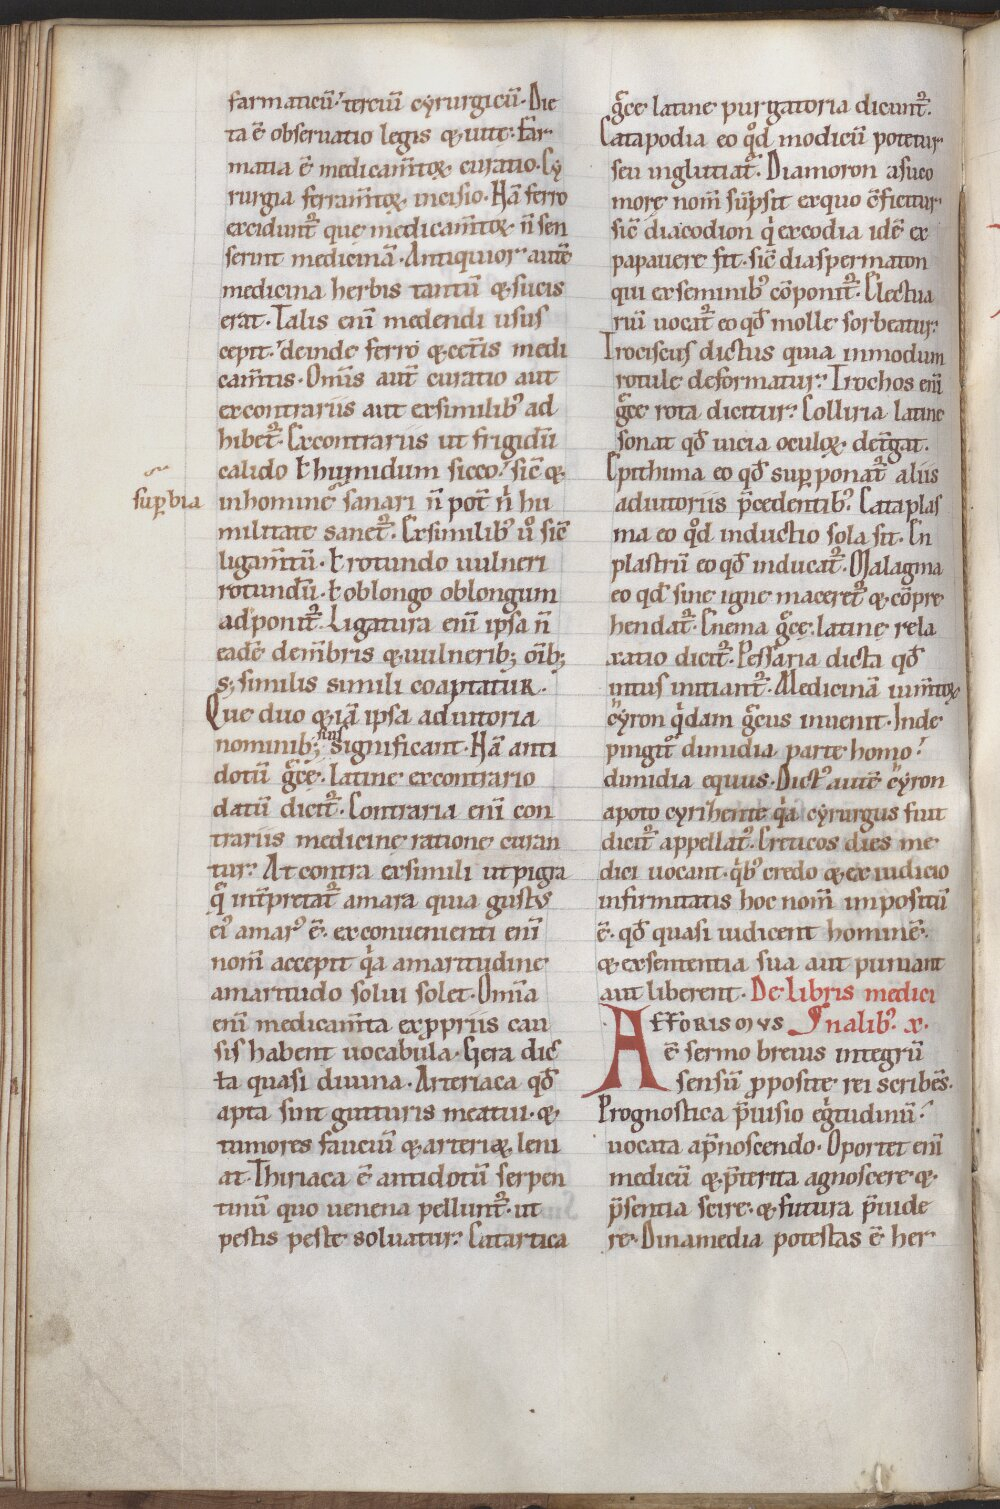 farmaticū. terciū cyrurgicū. Die
ta ē obseruatio legis & uite. Far
matia ē medicam̄toꝝ curatio. Cy
rurgia ferram̄toꝝ incisio. Nā ferro
exciduntᷣ que medicam̄toꝝ n̄ sen
serint medicinā. Antiquior autē
medicina herbis tantū & sucis
erat. Talis enī medendi usus
cepit. deinde ferro & cet̄is medi
cam̄tis. Om̄is aut̄ curatio aut
excontrariis aut exsimilibꝰ ad
hibetᷣ. Excontrariis ut frigidū
calido ł humidum sicco. sic̄ &
suꝑbia
inhomine sanari n̄ pot̄ nͥ hu
militate sanetᷣ. Exsimilibꝰ uͦ sic̄
ligam̄tū. ł rotundo uulneri
rotundū. ł oblongo oblongum
adponitᷣ. Ligatura enī ipsa n̄
eadē dem̄bris & uulnerib; oīb;
s; similis simili coaptatur.
Que duo & iā ipsa adiutoria
nominib; suis significant. Nā anti
dotū gͣce. latine excontrario
datū dicitᷣ. Contraria enī con
trariis medicine ratione curan
tur. At contra exsimili ut pigra
q̄ int̄pretatᷣ amara quia gustꝰ
eiꝰ amarꝰ ē. exconuenienti enī
nom̄ accepit qͥa amaritudine
amaritudo solui solet. Om̄ia
enī medicam̄ta expͥpriis cau
sis habent uocabula. Gera dic̄
ta quasi diuina. Arteriaca qđ
apta sint gutturis meatui. &
tumores fauciū & arteriaꝝ leni
at. Thiriaca ē antidotū serpen
tinū quo uenena pelluntᷣ. ut
pestis peste soluatur. Catartica
gͣce latine purgatoria dicuntᷣ.
Catapodia eo qͦd modicū potetur
seu inglutiatᷣ. Diamoron asuco
more nom̄ sūpsit exquo c̄ficitur
sic̄ diacodion qͥ excodia idē ex
papauere fit. sic̄ diaspermaton
qui exseminibꝰ cōponitᷣ. Electua
riū uocatᷣ eo qđ molle sorbeatur.
Trociscus dictus quia inmodum
rotule deformatur. Trochos enī
gͣce rota dicitur. Colliria latine
sonat qđ uicia oculoꝝ det̄gat.
Epithima eo qđ suꝑponatᷣ aliis
adiutoriis p̄cedentibꝰ. Cataplas
ma eo qͦd inductio sola sit. En
plastrū eo qđ inducatᷣ. Malagma
eo qd sine igne maceretᷣ & cōpre
hendatᷣ. Enema gͣce. latine rela
xatio dicitᷣ. Pessaria dicta qđ
intus initiantᷣ. Medicinā ium̄toꝝ
cyron qͥdam gͣcus inuenit. Inde
pingitᷣ dimidia parte homo.
dimidia equus. Dictꝰ autē cyron
apoto cyrihente qͥa cyrurgus fuit
dicitᷣ appellatꝰ. Criticos dies me
dici uocant. qͥbꝰ credo & ex iudicio
infirmitatis hoc nom̄ impositū
ē. qđ quasi iudicent hominē.
& exsententia sua aut puniant
aut liberent. De libris medici
Afforismus
nalibꝰ. x.
ē sermo breuis integrū
sensū ꝓposite rei scribēs.
Prognostica p̄uisio eg̃tudinū.
uocata ap̄noscendo. Oportet enī
medicū & p̄terita agnoscere. &
p̄sentia scire. & futura p̄uide
re. Dinamedia potestas ē her